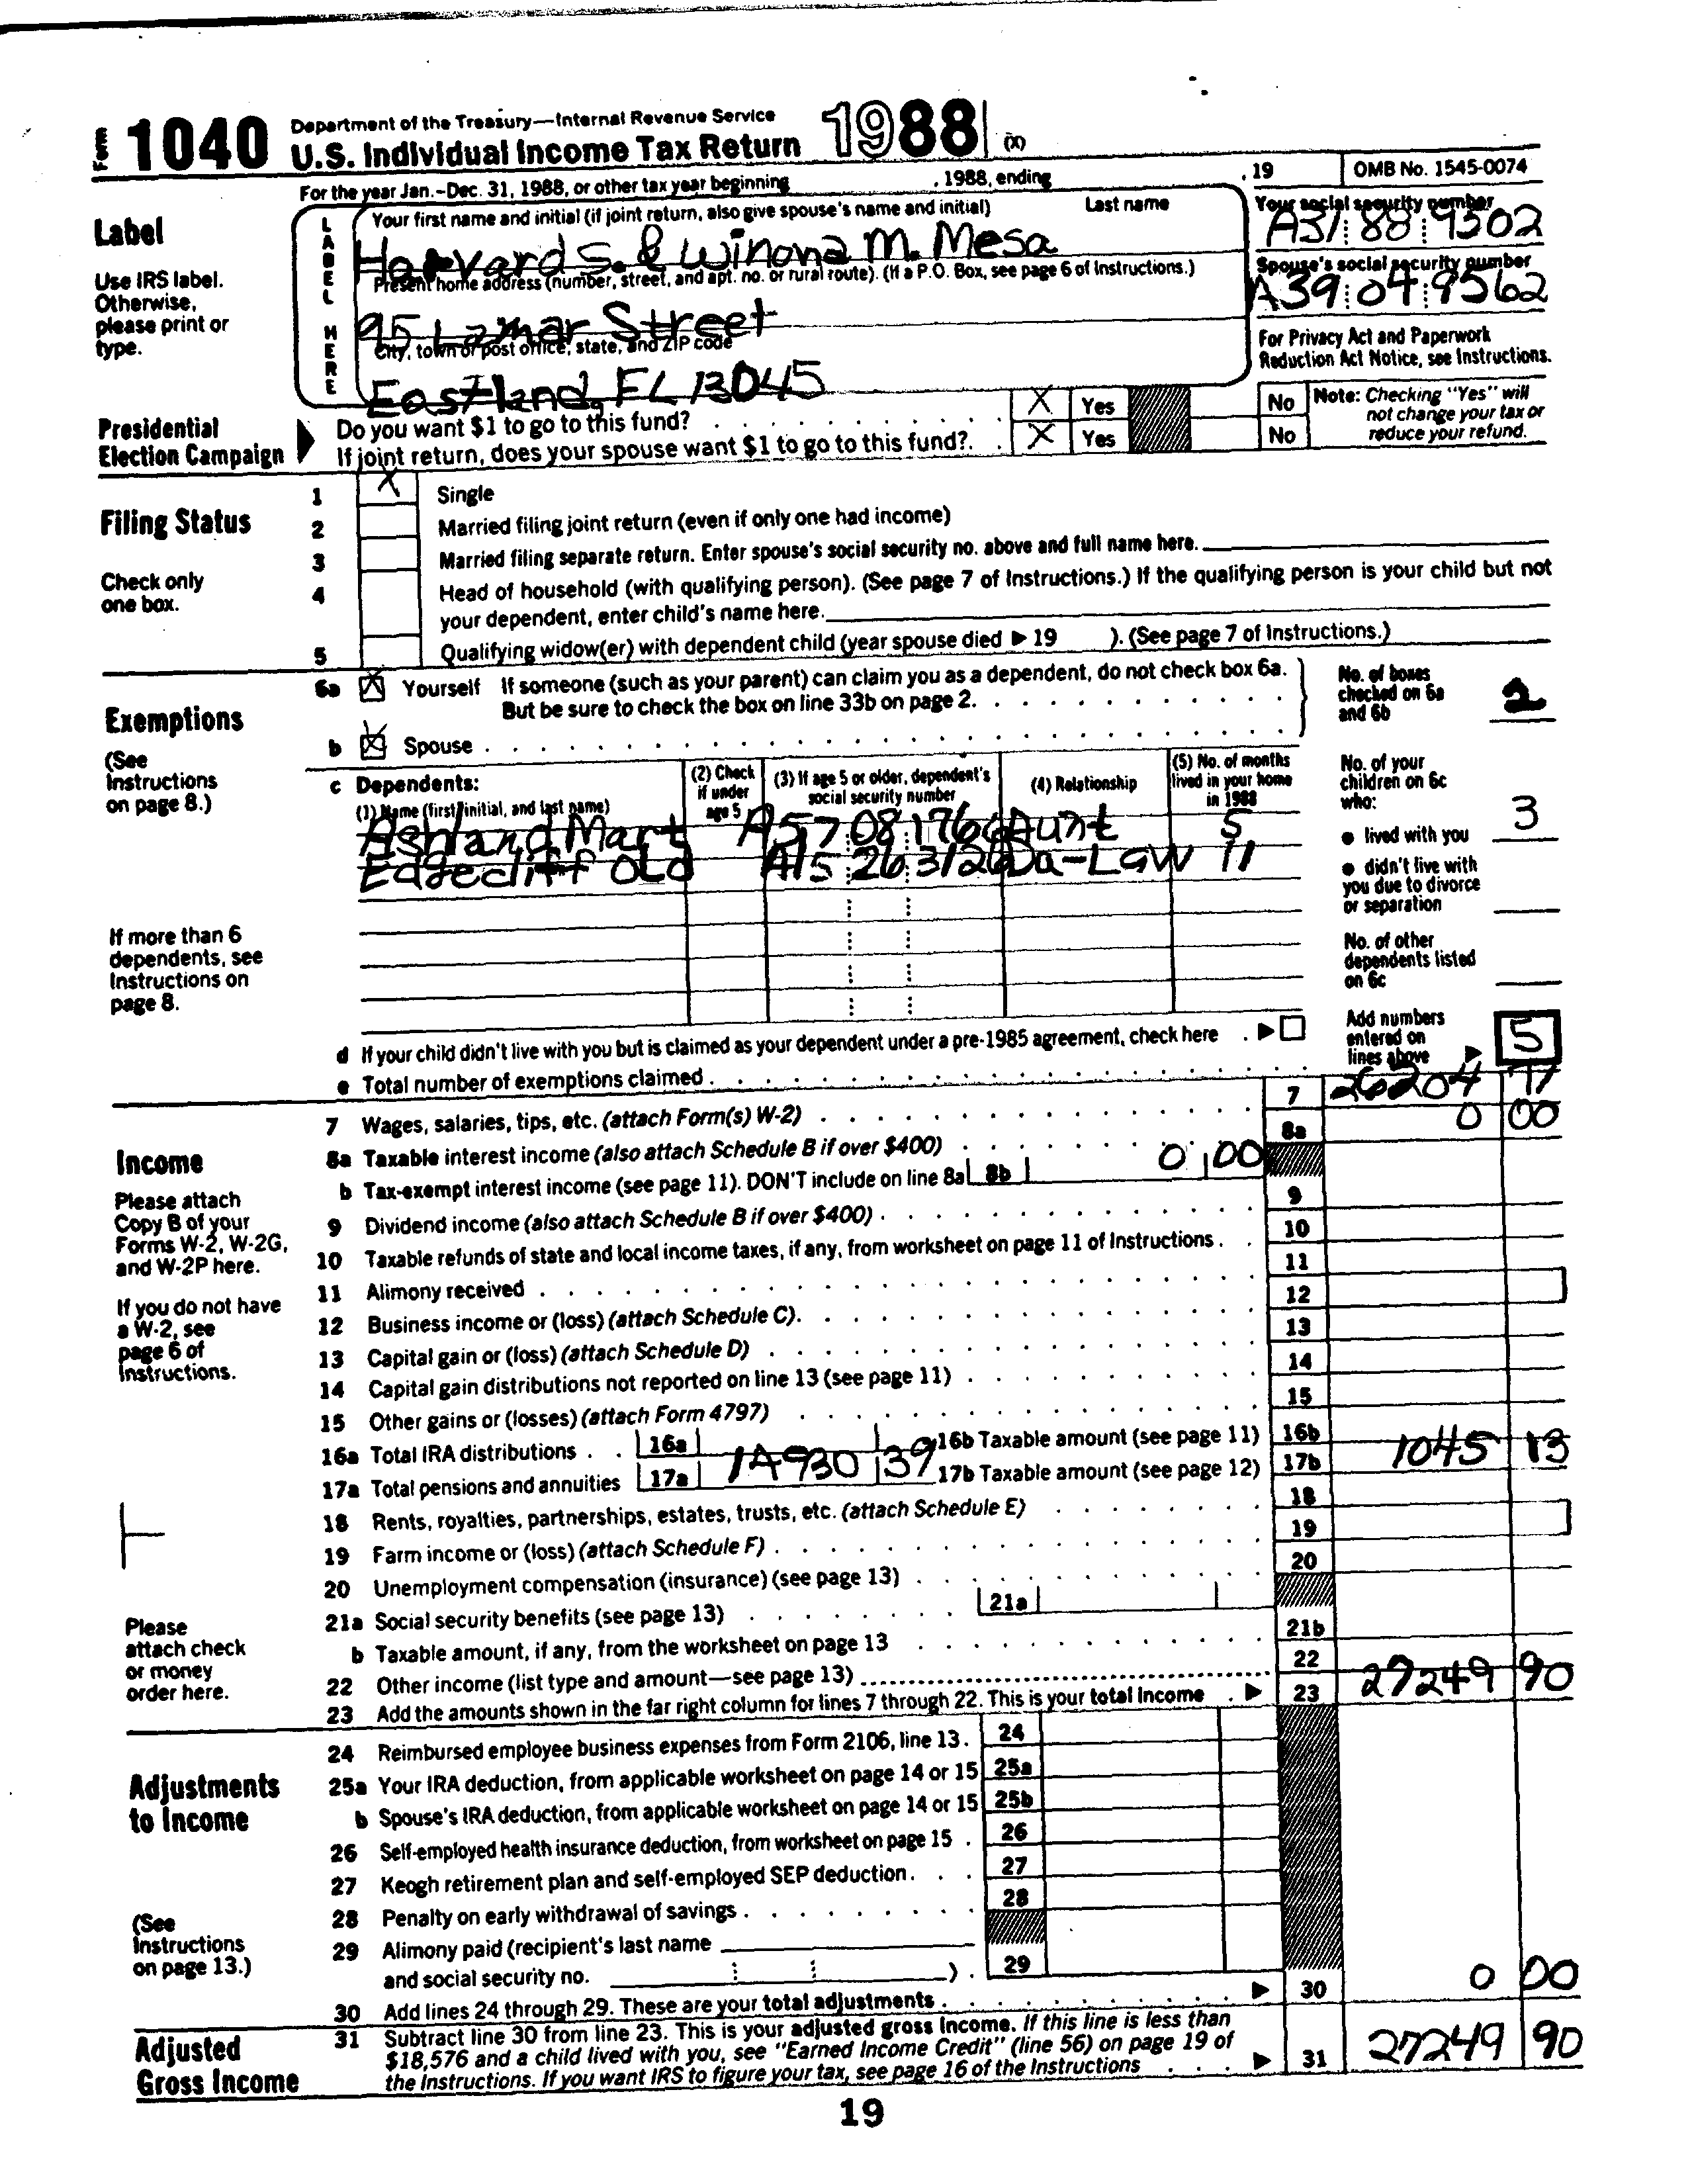 Form 1040 Department of the Treasury—Internal Revenue Service
U.S. Individual Income Tax Return 1988 (X)
For the year Jan.–Dec. 31, 1988, or other tax year beginning , 1988, ending , 19 OMB No. 1545-0074
Label
Use IRS label. Otherwise, please print or type.
LABEL HERE
Your first name and initial (if joint return, also give spouse's name and initial) Last name
Harvard S. & Winona M. Mesa
Your social security number
A31 88 9502
Present home address (number, street, and apt. no. or rural route). (If a P.O. Box, see page 6 of Instructions.)
95 Lamar Street
Spouse's social security number
A39 04 9562
City, town or post office, state, and ZIP code
Eastland, FL 13045
For Privacy Act and Paperwork Reduction Act Notice, see Instructions.
Presidential Election Campaign
Do you want $1 to go to this fund? X Yes No
If joint return, does your spouse want $1 to go to this fund? X Yes No
Note: Checking "Yes" will not change your tax or reduce your refund.
Filing Status
Check only one box.
1 X Single
2 Married filing joint return (even if only one had income)
3 Married filing separate return. Enter spouse's social security no. above and full name here.
4 Head of household (with qualifying person). (See page 7 of Instructions.) If the qualifying person is your child but not
your dependent, enter child's name here.
5 Qualifying widow(er) with dependent child (year spouse died ▶ 19 ). (See page 7 of Instructions.)
Exemptions
(See Instructions on page 8.)
6a X Yourself If someone (such as your parent) can claim you as a dependent, do not check box 6a.
But be sure to check the box on line 33b on page 2.
b X Spouse
No. of boxes checked on 6a and 6b 2
c Dependents:
(1) Name (first, initial, and last name)
(2) Check if under age 5
(3) If age 5 or older, dependent's social security number
(4) Relationship
(5) No. of months lived in your home in 1988
Ashland Mart A57 08 1766 Aunt 5
Edgecliff Old A15 26 3126 Da-Law 11
No. of your children on 6c who:
● lived with you 3
● didn't live with you due to divorce or separation
No. of other dependents listed on 6c
If more than 6 dependents, see Instructions on page 8.
d If your child didn't live with you but is claimed as your dependent under a pre-1985 agreement, check here ▶
e Total number of exemptions claimed
Add numbers entered on lines above ▶ 5
Income
Please attach Copy B of your Forms W-2, W-2G, and W-2P here.
If you do not have a W-2, see page 6 of Instructions.
Please attach check or money order here.
7 Wages, salaries, tips, etc. (attach Form(s) W-2) 7 26204 77
8a Taxable interest income (also attach Schedule B if over $400) 8a 0 00
b Tax-exempt interest income (see page 11). DON'T include on line 8a 8b 0 00
9 Dividend income (also attach Schedule B if over $400) 9
10 Taxable refunds of state and local income taxes, if any, from worksheet on page 11 of Instructions 10
11 Alimony received 11
12 Business income or (loss) (attach Schedule C) 12
13 Capital gain or (loss) (attach Schedule D) 13
14 Capital gain distributions not reported on line 13 (see page 11) 14
15 Other gains or (losses) (attach Form 4797) 15
16a Total IRA distributions 16a 16b Taxable amount (see page 11) 16b
17a Total pensions and annuities 17a 14930 39 17b Taxable amount (see page 12) 17b 1045 13
18 Rents, royalties, partnerships, estates, trusts, etc. (attach Schedule E) 18
19 Farm income or (loss) (attach Schedule F) 19
20 Unemployment compensation (insurance) (see page 13) 20
21a Social security benefits (see page 13) 21a
b Taxable amount, if any, from the worksheet on page 13 21b
22 Other income (list type and amount—see page 13) 22
23 Add the amounts shown in the far right column for lines 7 through 22. This is your total income ▶ 23 27249 90
Adjustments to Income
(See Instructions on page 13.)
24 Reimbursed employee business expenses from Form 2106, line 13 24
25a Your IRA deduction, from applicable worksheet on page 14 or 15 25a
b Spouse's IRA deduction, from applicable worksheet on page 14 or 15 25b
26 Self-employed health insurance deduction, from worksheet on page 15 26
27 Keogh retirement plan and self-employed SEP deduction 27
28 Penalty on early withdrawal of savings 28
29 Alimony paid (recipient's last name
and social security no. ) 29
30 Add lines 24 through 29. These are your total adjustments ▶ 30 0 00
Adjusted Gross Income
31 Subtract line 30 from line 23. This is your adjusted gross income. If this line is less than
$18,576 and a child lived with you, see "Earned Income Credit" (line 56) on page 19 of
the Instructions. If you want IRS to figure your tax, see page 16 of the Instructions ▶ 31 27249 90
19